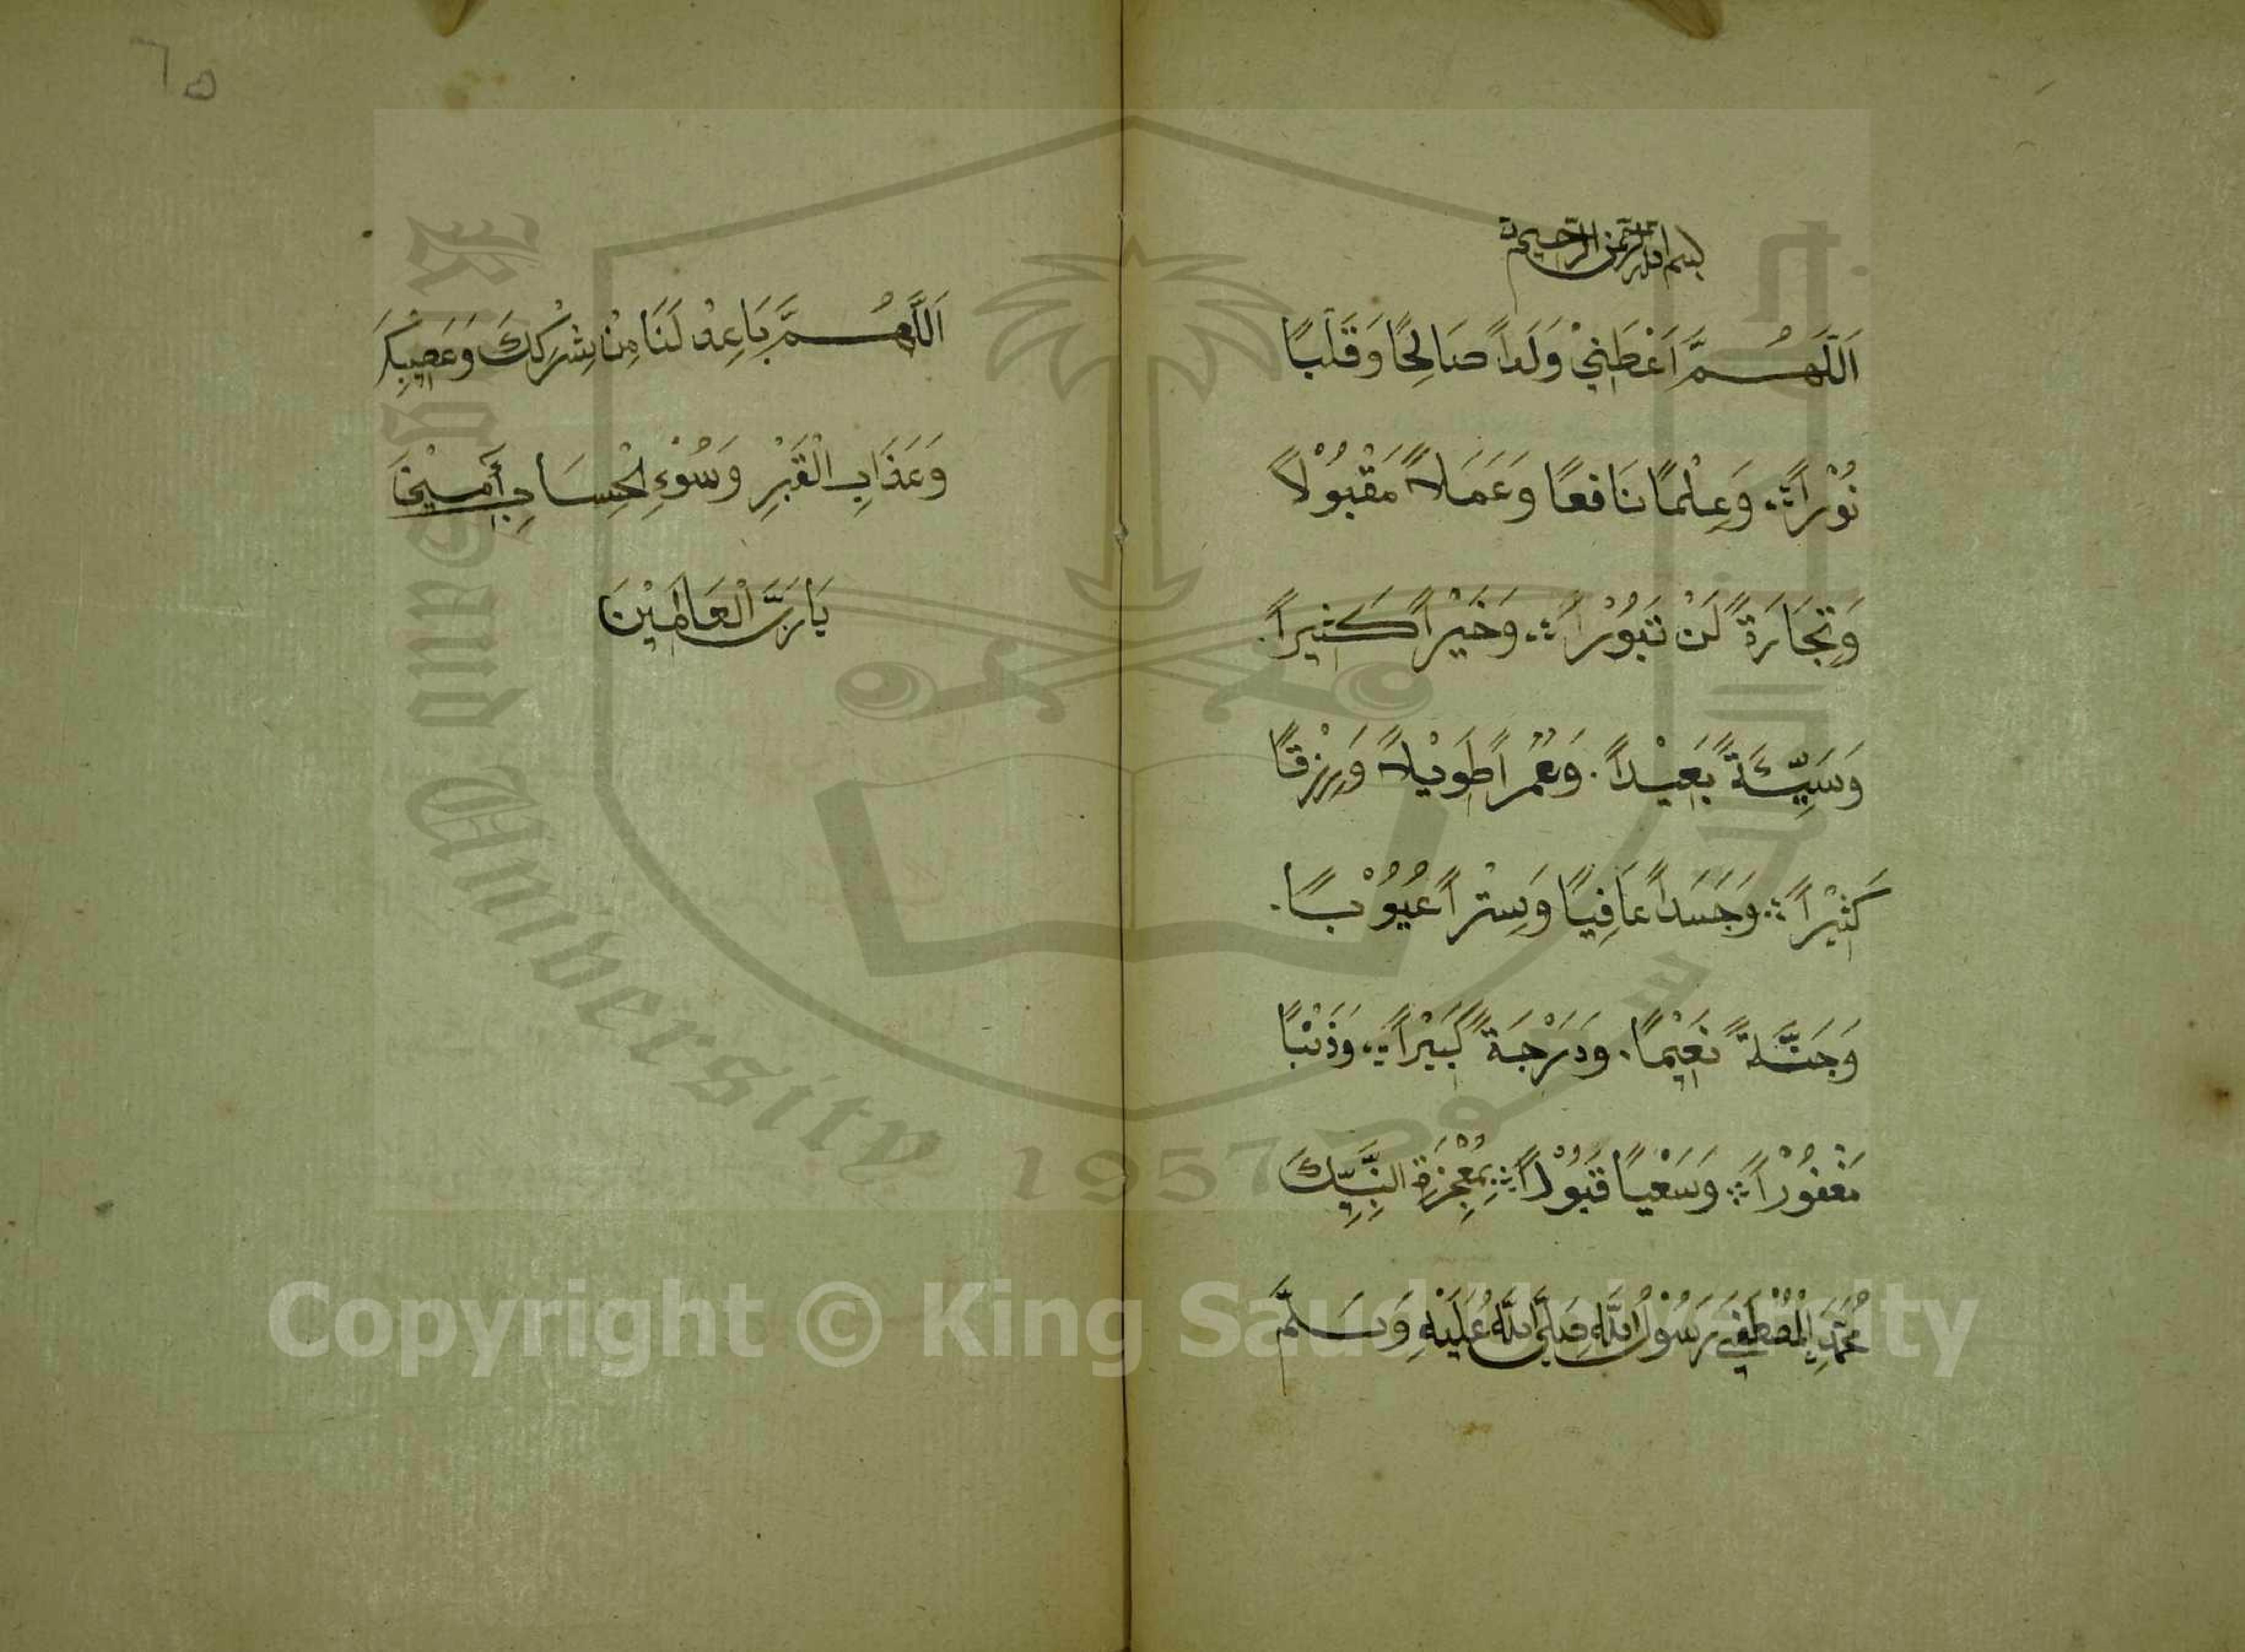 بسم الله الرحمن الرحيم
اَللَّهُمَّ اَعْطِنِيْ وَلَداً صَالِحًا وَقَلْبًا
نُوْراً وَعِلْمًا نَافِعًا وَعَمَلاً مَقْبُوْلاً
وَتِجَارَةً لَنْ تَبُوْراً وَخَيْراً كَثِيراً
وَسَيِّئَةً بَعِيْداً وَعُمْراً طَوِيْلاً وَرِزْقًا
كَثِيْراً وَجَسَداً عَافِيًا وَسِتْراً عُيُوْبًا
وَجَنَّةً نَعِيْمًا وَدَرْجَةً كَبِيْراً وَذَنْبًا
مَغْفُوْراً وَسَعْيًا قَبُوْلاً بِمُعْجِزَةِ النَّبِيِّكَ
مُحَمَّدِ الْمُصْطَفَى رَسُوْلُ اللَّهِ صَلَّى اللَّهُ عَلَيْهِ وَسَلَّمَ
٦٥
اَللَّهُمَّ بَاعِدْ لَنَا مِنْ شِرْكِكَ
وَعَذَابِ الْقَبْرِ وَسُوْءِ الْحِسَابِ أَمِيْنَ
يَا رَبَّ الْعَالَمِيْنَ
King Saud University
1957
Copyright © King Saud University